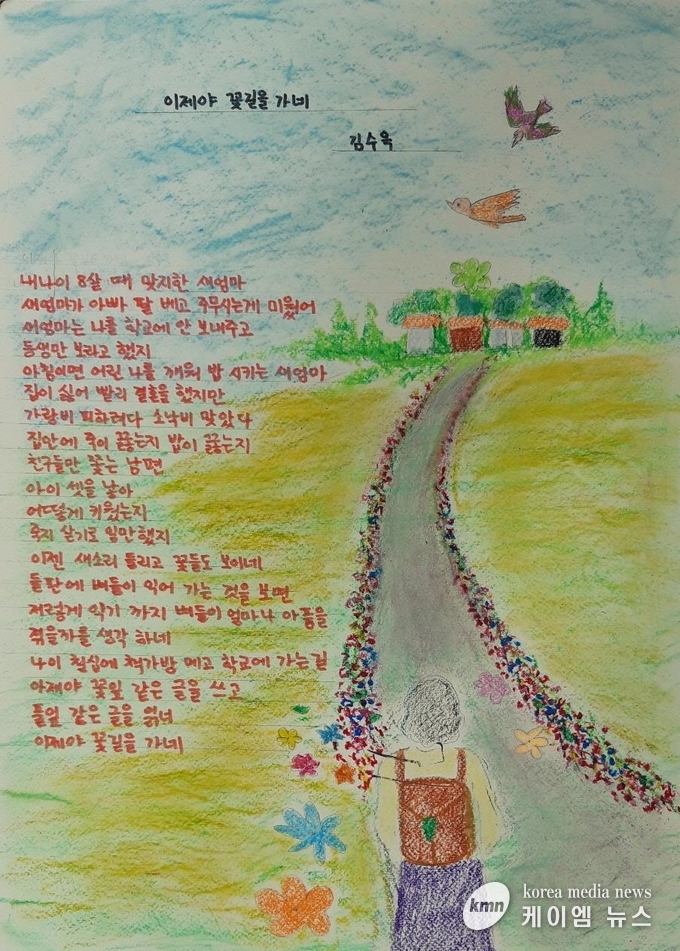 이제야 꽃길을 가네
김수옥
내나이 8살 때 맞지한 새엄마
새엄마가 아빠 팔 베고 주무시는게 미웠어
새엄마는 나를 학교에 안 보내주고
동생만 보라고 했지
아침이면 어린 나를 깨워 밥 시키는 새엄마
집이 싫어 빨리 결혼을 했지만
가랑비 피하려다 소낙비 맞았다
집안에 죽이 끓는지 밥이 끓는지
친구들만 쫓는 남편
아이 셋을 낳아
어떻게 키웠는지
죽지 살기로 일만했지
이젠 새소리 들리고 꽃들도 보이네
들판에 벼들이 익어 가는 것을 보면
저렇게 익기 까지 벼들이 얼마나 아픔을
겪을까를 생각 하네
나이 칠십에 책가방 메고 학교에 가는길
아제야 꽃잎 같은 글을 쓰고
풀잎 같은 글을 읽너
이제야 꽃길을 가네
kmn
korea media news
케이엠 뉴스